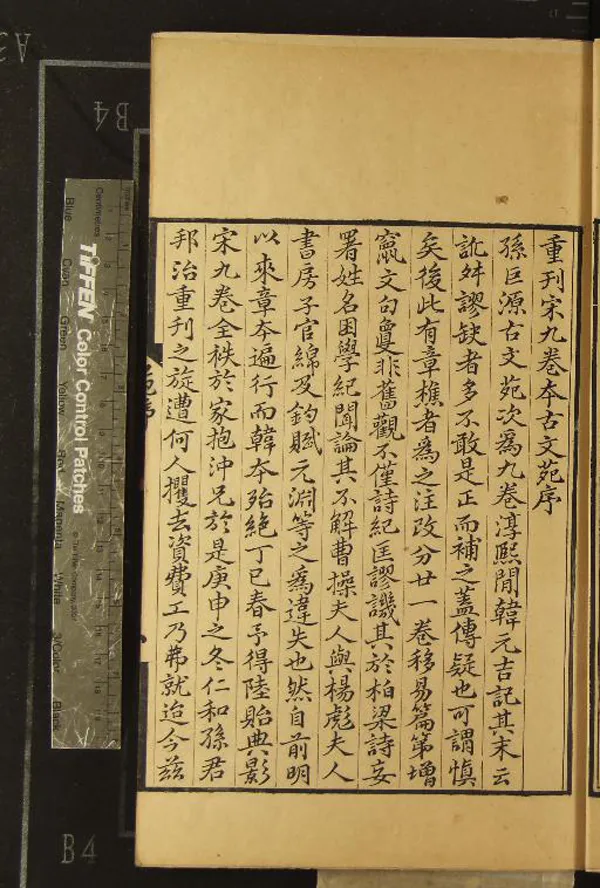 重刊宋九卷本古文苑序
孫巨源古文苑次爲九卷淳熙閒韓元吉記其末云
訛舛謬缺者多不敢是正而補之蓋傳疑也可謂慎
矣後此有章樵者爲之注改分廿一卷移易篇第增
竄文句敻非舊觀不僅詩紀匡謬譏其於柏梁詩妄
署姓名困學紀聞論其不解曹操夫人與楊彪夫人
書房子官綿及釣賦元淵等之爲違失也然自前明
以來章本遍行而韓本殆絕丁巳春予得陸貽典影
宋九卷全袟於家抱沖兄於是庚申之冬仁和孫君
邦治重刊之旋遭何人攫去資費工乃弗就迨今茲
苑序
TIFFEN Color Control Patches
© The Tiffen Company, 2000
Centimetres
Inches
Blue
Cyan
Green
Yellow
Red
Magenta
White
3/Color
Black
A3
B4
B4